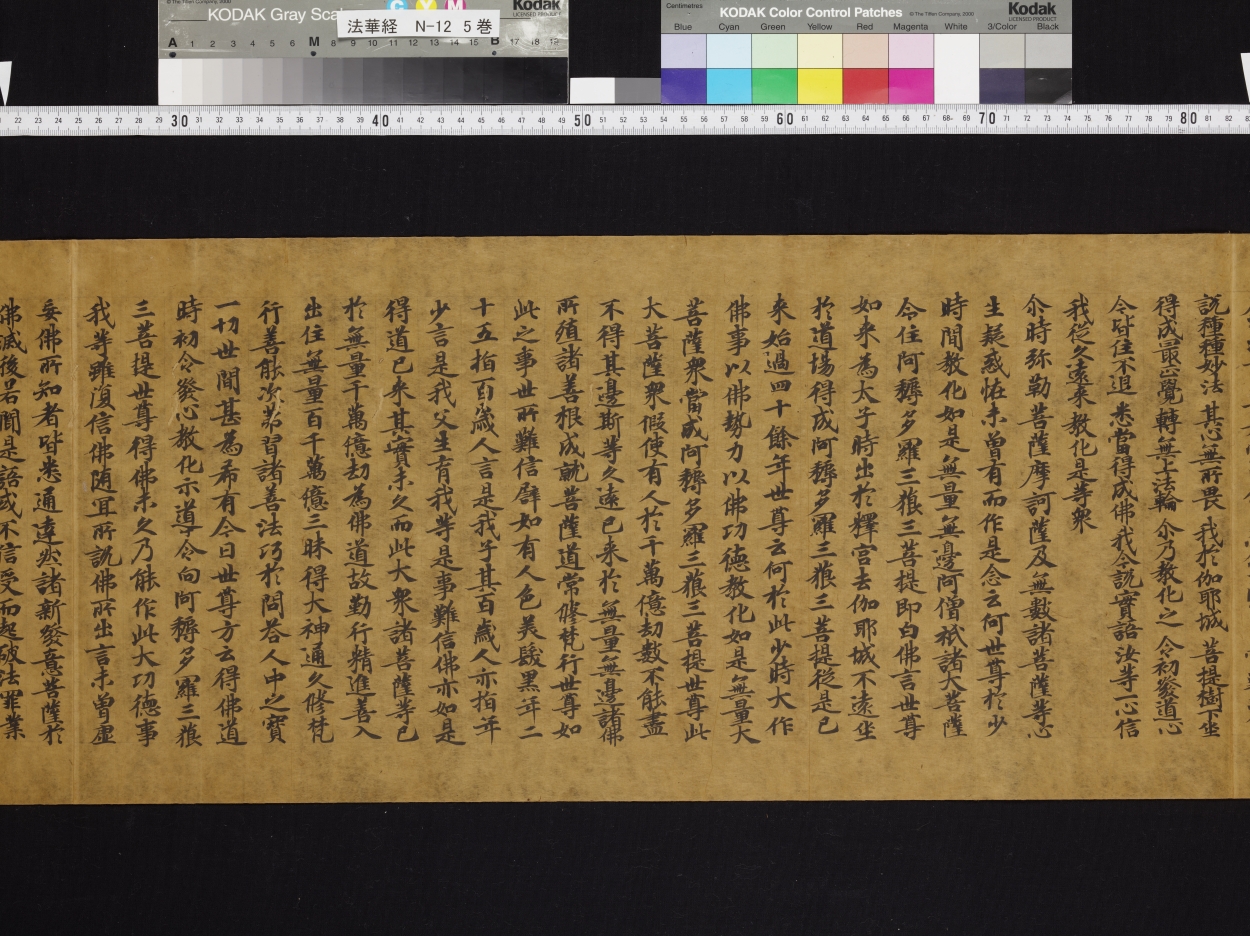 © The Tiffen Company, 2000
KODAK Gray Scale
C Y M
Kodak
LICENSED PRODUCT
法華経 N-12 5巻
A 1 2 3 4 5 6 M 8 9 10 11 12 13 14 15 B 17 18 19
Centimetres
KODAK Color Control Patches
© The Tiffen Company, 2000
Kodak
LICENSED PRODUCT
Blue Cyan Green Yellow Red Magenta White 3/Color Black
22 23 24 25 26 27 28 29 30 31 32 33 34 35 36 37 38 39 40 41 42 43 44 45 46 47 48 49 50 51 52 53 54 55 56 57 58 59 60 61 62 63 64 65 66 67 68 69 70 71 72 73 74 75 76 77 78 79 80 81 82
説種種妙法其心無所畏我於伽耶城菩提樹下坐
得成最正覺轉無上法輪尒乃教化之令初發道心
今皆住不退悉當得成佛我今說實語汝等一心信
我従久遠来教化是等衆
尒時弥勒菩薩摩訶薩及無數諸菩薩等心
生疑惑恠未曾有而作是念云何世尊於少
時間教化如是無量無邊阿僧祇諸大菩薩
令住阿耨多羅三藐三菩提即白佛言世尊
如来為太子時出於釋宮去伽耶城不遠坐
於道場得成阿耨多羅三藐三菩提従是已
来始過四十餘年世尊云何於此少時大作
佛事以佛勢力以佛功德教化如是無量大
菩薩衆當成阿耨多羅三藐三菩提世尊此
大菩薩衆假使有人於千萬億劫數不能盡
不得其邊斯等久遠已来於無量無邊諸佛
所殖諸善根成就菩薩道常修梵行世尊如
此之事世所難信譬如有人色美髮黒年二
十五指百歳人言是我子其百歳人亦指年
少言是我父生育我等是事難信佛亦如是
得道已来其實未久而此大衆諸菩薩等已
於無量千萬億劫為佛道故勤行精進善入
出住無量百千萬億三昧得大神通久修梵
行善能次第習諸善法巧於問荅人中之寶
一切世間甚為希有今日世尊方云得佛道
時初令發心教化示道令向阿耨多羅三藐
三菩提世尊得佛未久乃能作此大功德事
我等雖復信佛随冝所說佛所出言未曾虚
妄佛所知者皆悉通達然諸新發意菩薩於
佛滅後若聞是語或不信受而起破法罪業